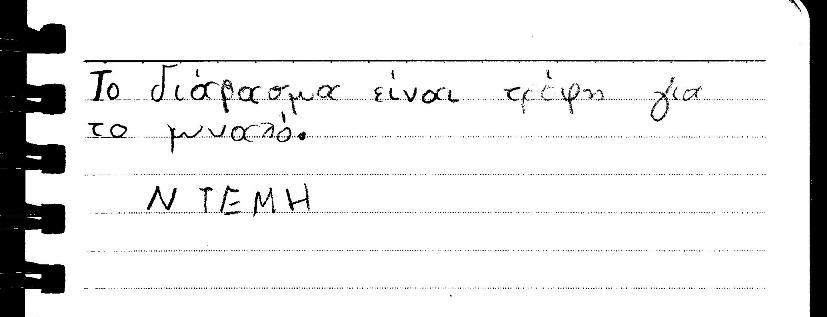 Το διάβασμα είναι τρέφη για
το μυναλό.
ΝΤΕΜΗ